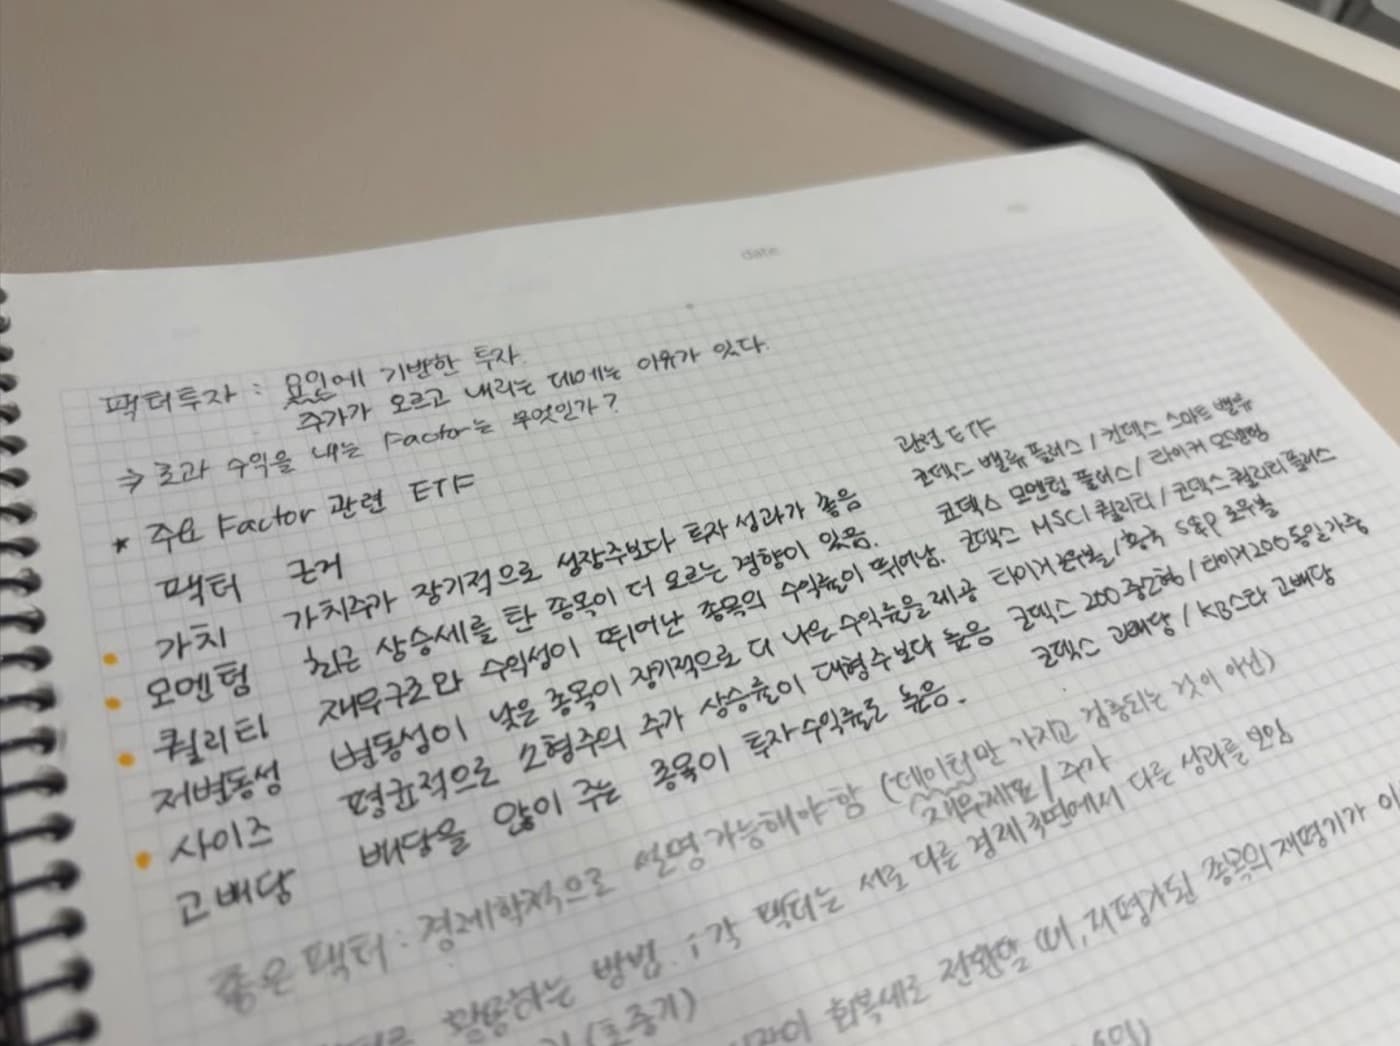 date
팩터투자 : 요인에 기반한 투자.
주가가 오르고 내리는 데에는 이유가 있다.
⇒ 초과 수익을 내는 Factor는 무엇인가?
* 주요 Factor 관련 ETF
팩터 근거 관련 ETF
가치 가치주가 장기적으로 성장주보다 투자 성과가 좋음 코덱스 밸류 플러스 / 코덱스 스마트 밸류
모멘텀 최근 상승세를 탄 종목이 더 오르는 경향이 있음. 코덱스 모멘텀 플러스 / 타이거 모멘텀
퀄리티 재무구조와 수익성이 뛰어난 종목의 수익률이 뛰어남. 코덱스 MSCI 퀄리티 / 코덱스 퀄리티 플러스
저변동성 변동성이 낮은 종목이 장기적으로 더 나은 수익률을 제공 타이거 로우볼 / 흥국 S&P 로우볼
사이즈 평균적으로 소형주의 주가 상승률이 대형주보다 높음 코덱스 200 중소형 / 타이거 200 동일가중
고배당 배당을 많이 주는 종목이 투자수익률로 높음. 코덱스 고배당 / KB스타 고배당
좋은 팩터 : 경제학적으로 설명가능해야 함 (데이터만 가지고 검증되는 것이 아님)
재무제표 / 주가
활용하는 방법. ; 각 팩터는 서로 다른 경제 국면에서 다른 성과를 보임
회복세로 전환할 때, 저평가된 종목의 재평가가